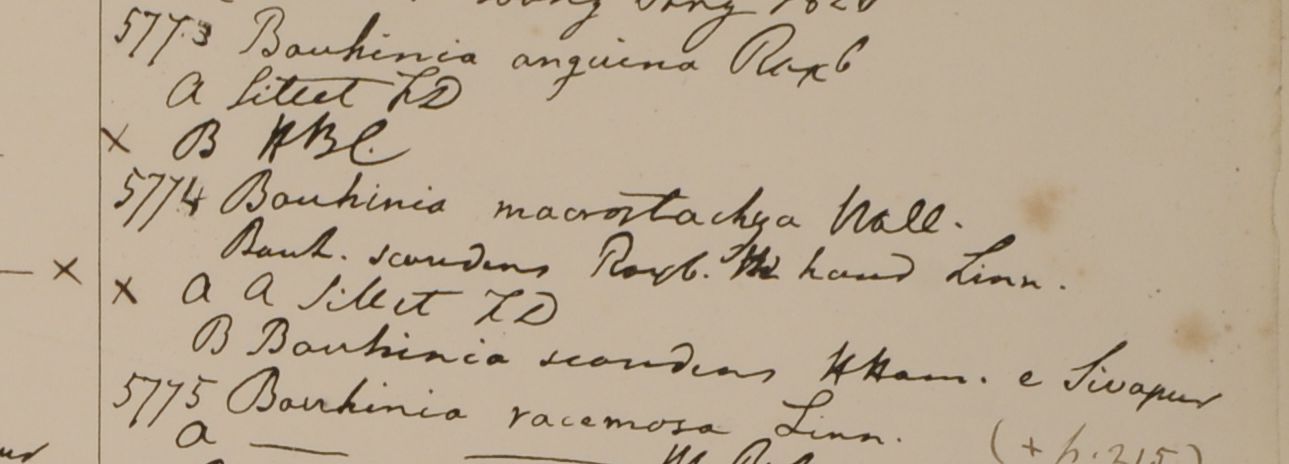 Hong Kong 1820
5773 Bauhinia anguina Roxb
A Sillet FD
x B HBC.
5774 Bauhinia macrostachya Wall.
Bauh. scandens Roxb. haud Linn.
x
x A A Sillet FD
B Bauhinia scandens HHam. e Sivapur
5775 Bauhinia racemosa Linn.
A (+ p. 215)